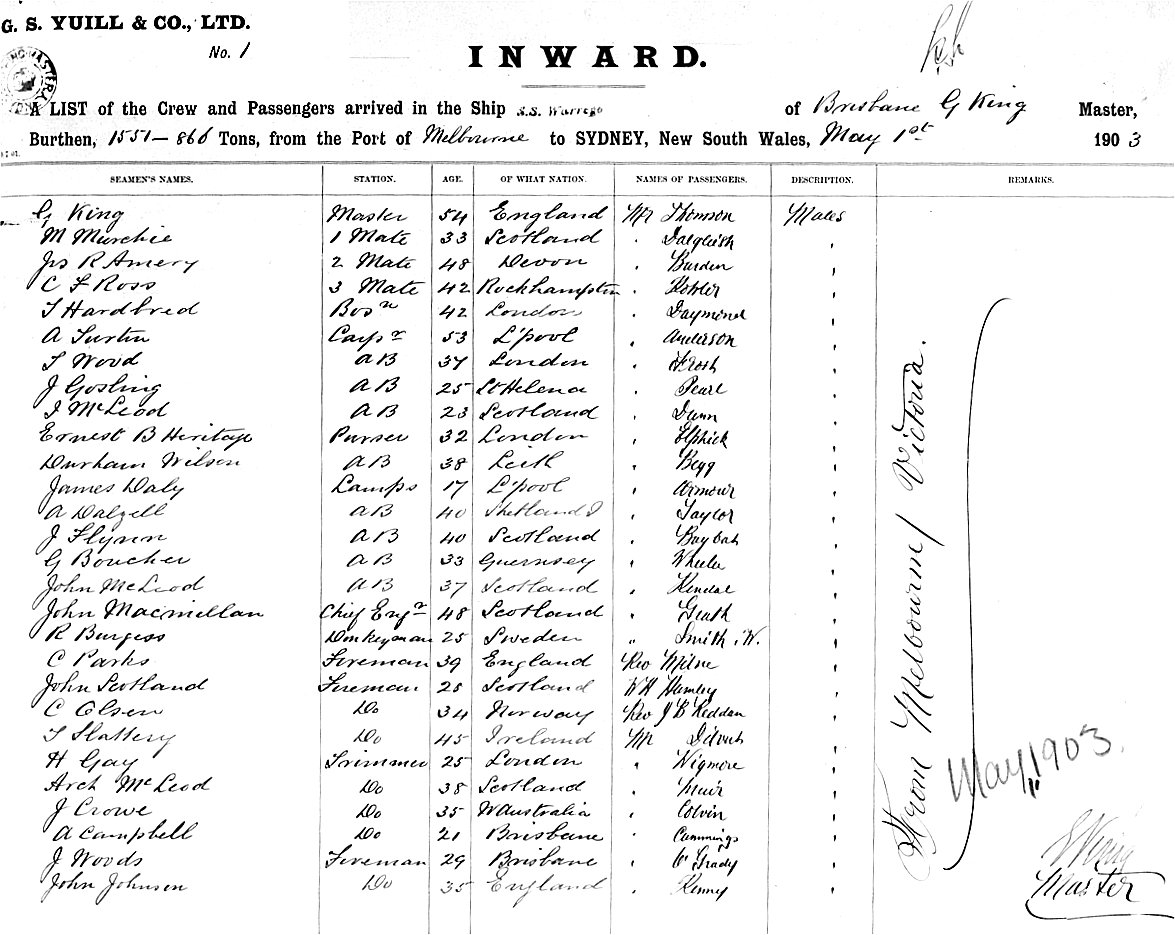 G. S. YUILL & CO., LTD.
No. 1
INWARD.
A LIST of the Crew and Passengers arrived in the Ship S.S. Warrego of Brisbane G King Master,
Burthen, 1551 - 866 Tons, from the Port of Melbourne to SYDNEY, New South Wales, May 1st 1903
SEAMEN'S NAMES. STATION. AGE. OF WHAT NATION. NAMES OF PASSENGERS. DESCRIPTION. REMARKS.
G King Master 54 England Mr Thomson Males
M Murchie 1 Mate 33 Scotland " Dalgleish "
Jas R Amery 2 Mate 48 Devon " Burden "
C F Ross 3 Mate 42 Rockhampton " "
T Hardbred Bosn 42 London " Daymond "
A Turtin Carpr 53 L'pool " Anderson "
T Wood AB 37 London " Frost "
J Gosling AB 25 St Helena " Pearl "
J McLeod AB 23 Scotland " Dunn "
Ernest B Heritage Purser 32 London " Elphick "
Durham Wilson AB 38 Leith " Begg "
James Daly Lamps 17 L'pool " Armour "
A Dalzell AB 40 Shetland I " Taylor "
J Flynn AB 40 Scotland " "
G Boucher AB 33 Guernsey " Wheeler "
John McLeod AB 37 Scotland " Kendal "
John Macmillan Chief Engr 48 Scotland " "
R Burgess Donkeyman 25 Sweden " Smith .W. "
C Parks Fireman 39 England Rev Milne "
John Scotland Fireman 25 Scotland W H "
C Olsen Do 34 Norway Rev J B Keddan "
T Slattery Do 45 Ireland Mr "
H Gay Trimmer 25 London " Wigmore "
Arch McLeod Do 38 Scotland " Muir "
J Crowe Do 35 W Australia " Colvin "
A Campbell Do 21 Brisbane " Cummings "
J Woods Fireman 29 Brisbane " O'Grady "
John Johnson Do 35 England " Kenny "
From Melbourne / Victoria.
May 1903.
G King
Master